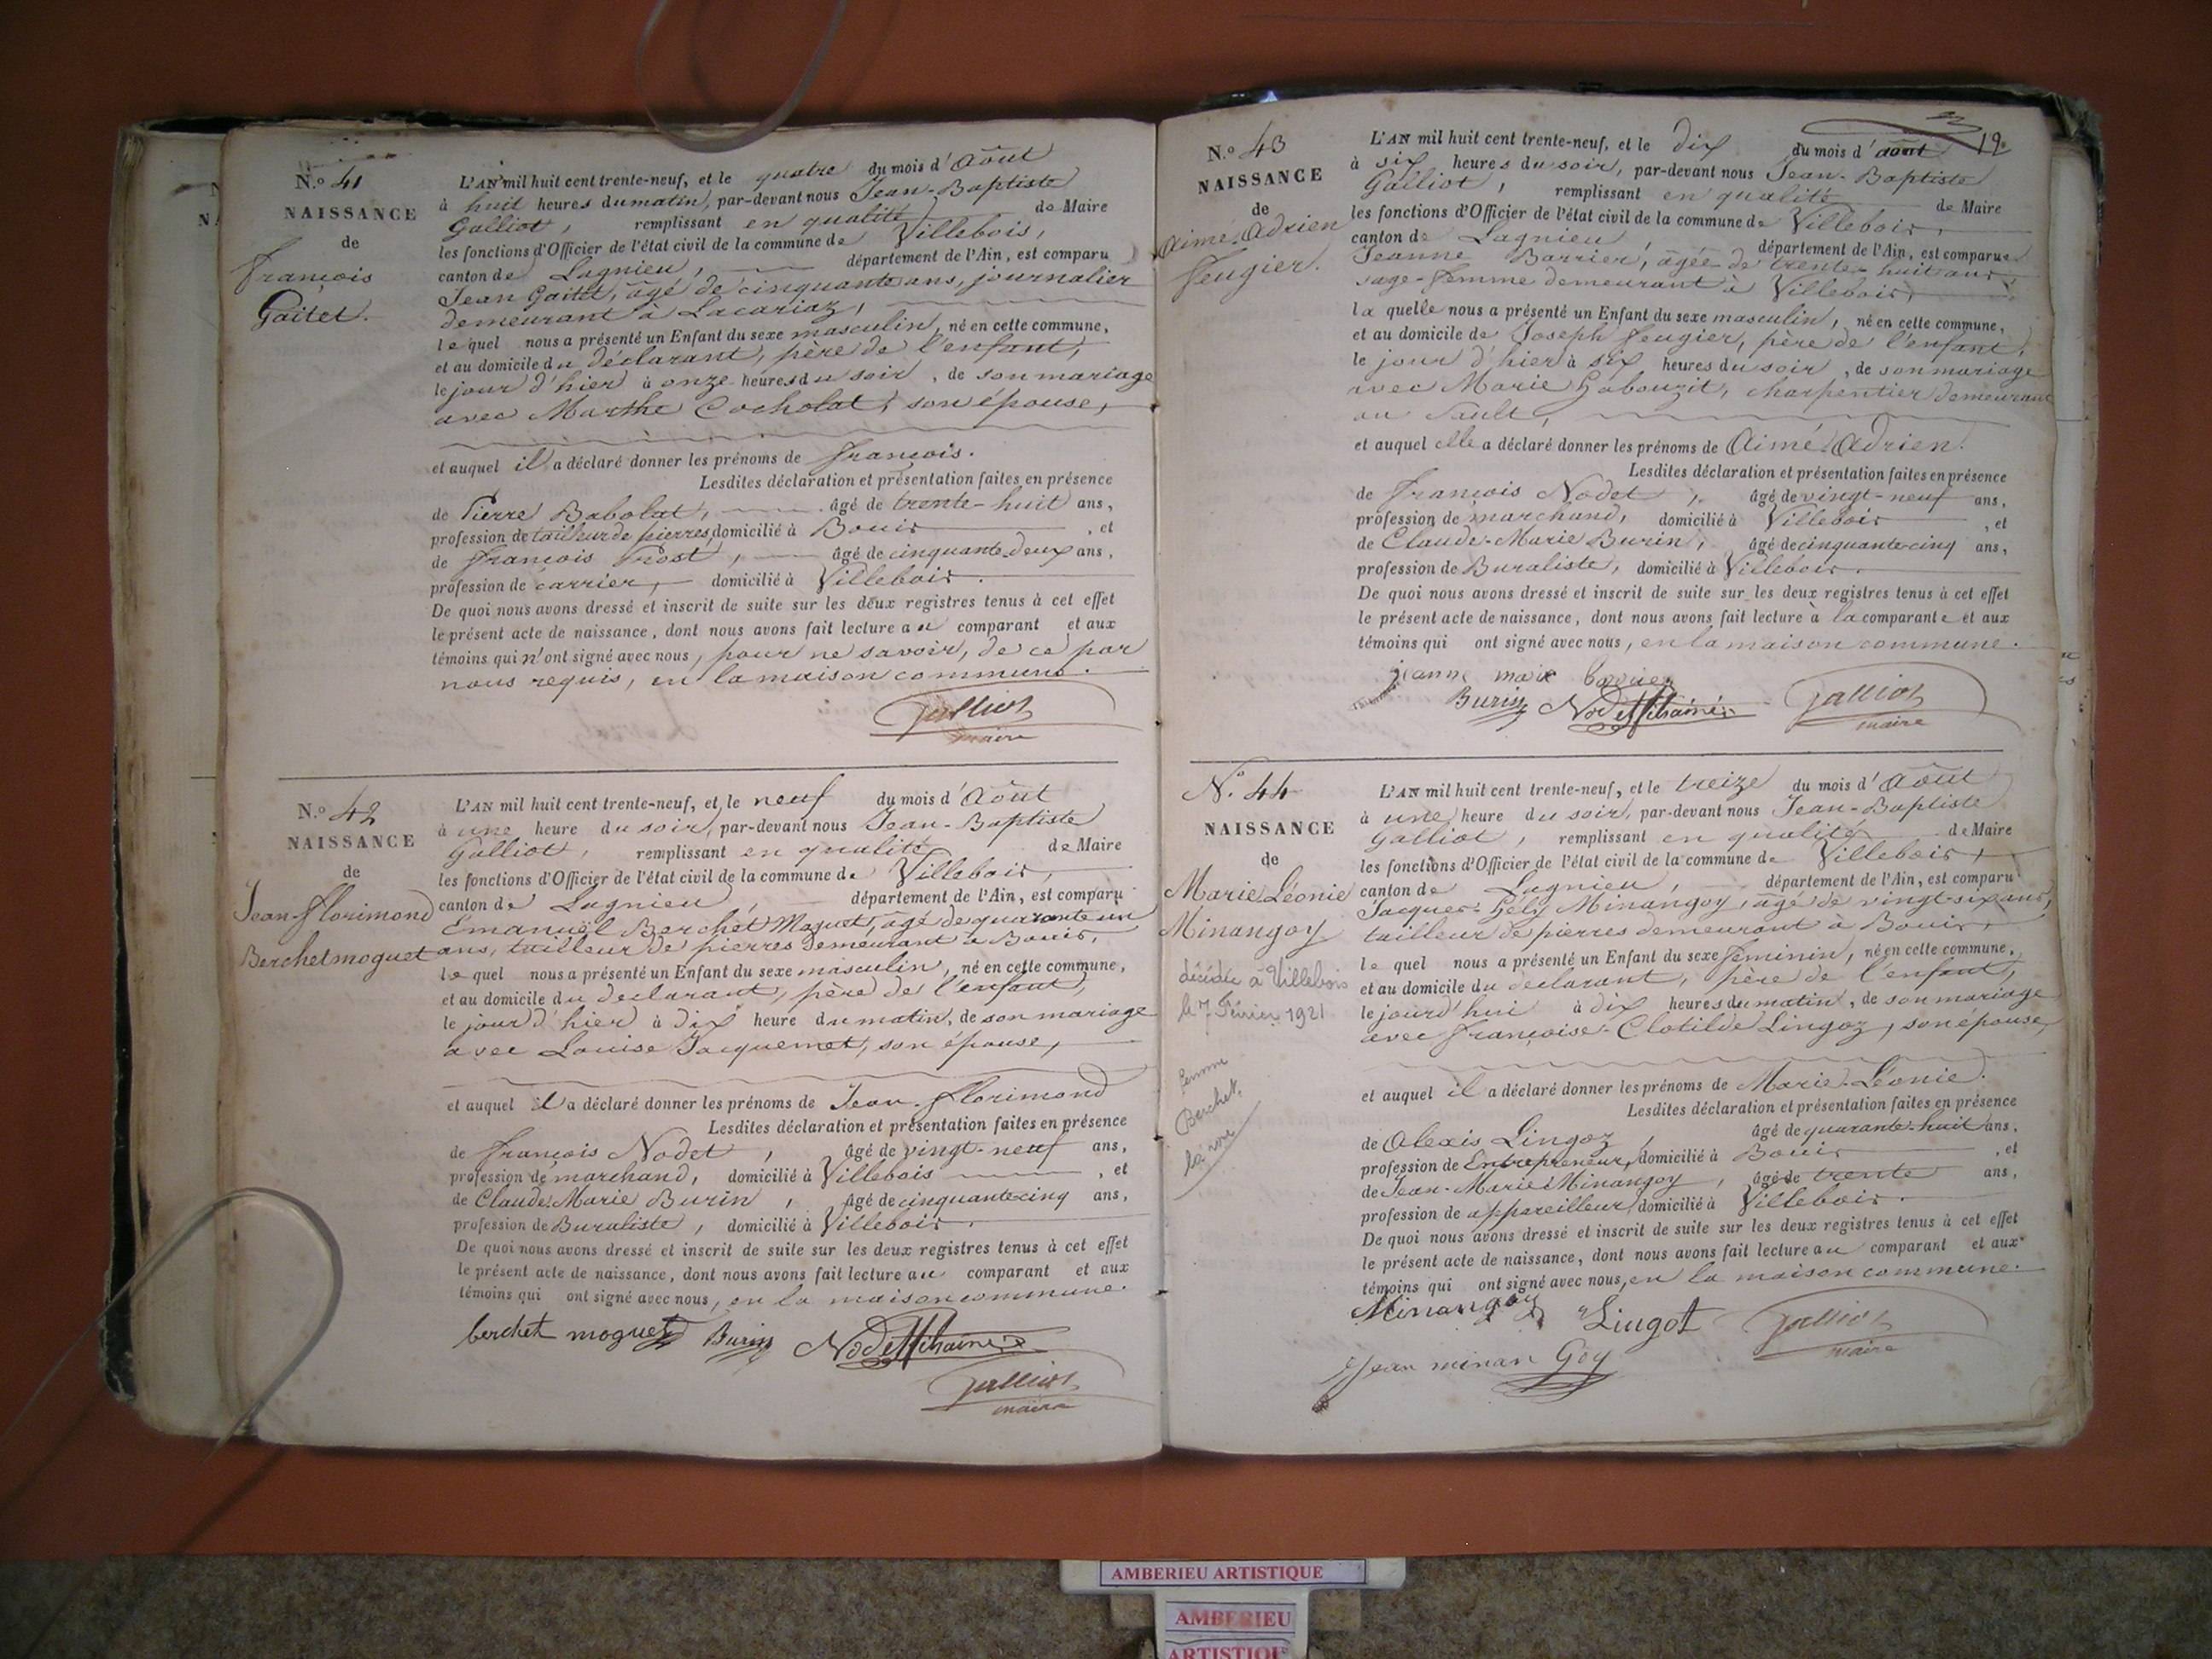 N.º 41
NAISSANCE
de
François
Gaitet.
L'AN mil huit cent trente-neuf, et le quatre du mois d'Août
à huit heures du matin, par-devant nous Jean-Baptiste
Galliot, remplissant en qualité de Maire
les fonctions d'Officier de l'état civil de la commune de Villebois,
canton de Lagnieu, département de l'Ain, est comparu
Jean Gaitet, âgé de cinquante ans, journalier
demeurant à Lacariaz,
lequel nous a présenté un Enfant du sexe masculin, né en cette commune,
et au domicile du déclarant, père de l'enfant,
le jour d'hier à onze heures du soir, de son mariage
avec Marthe Cocholat, son épouse,
et auquel il a déclaré donner les prénoms de François.
Lesdites déclaration et présentation faites en présence
de Pierre Babolat, âgé de trente-huit ans,
profession de tailleur de pierres, domicilié à Bouis, et
de François Prost, âgé de cinquante-deux ans,
profession de carrier, domicilié à Villebois.
De quoi nous avons dressé et inscrit de suite sur les deux registres tenus à cet effet
le présent acte de naissance, dont nous avons fait lecture au comparant et aux
témoins qui n'ont signé avec nous, pour ne savoir, de ce par
nous requis, en la maison commune.
Galliot
maire
N.º 42
NAISSANCE
de
Jean-florimond
Berchetmoguet
L'AN mil huit cent trente-neuf, et le neuf du mois d'Août
à une heure du soir, par-devant nous Jean-Baptiste
Galliot, remplissant en qualité de Maire
les fonctions d'Officier de l'état civil de la commune de Villebois,
canton de Lagnieu, département de l'Ain, est comparu
Emanuël Berchet Moguet, âgé de quarante un
ans, tailleur de pierres demeurant à Bouis,
lequel nous a présenté un Enfant du sexe masculin, né en cette commune,
et au domicile du declarant, père de l'enfant,
le jour d'hier à dix heure du matin, de son mariage
avec Louise Jacquemet, son épouse,
et auquel il a déclaré donner les prénoms de Jean-florimond
Lesdites déclaration et présentation faites en présence
de François Nodet, âgé de vingt-neuf ans,
profession de marchand, domicilié à Villebois, et
de Claude-Marie Burin, âgé de cinquante-cinq ans,
profession de Buraliste, domicilié à Villebois.
De quoi nous avons dressé et inscrit de suite sur les deux registres tenus à cet effet
le présent acte de naissance, dont nous avons fait lecture au comparant et aux
témoins qui ont signé avec nous, en la maison commune.
berchet moguet Burin Nodet
Galliot
maire
12.
N.º 43
NAISSANCE
de
Aimé-Adrien
feugier.
L'AN mil huit cent trente-neuf, et le dix du mois d'août
à six heures du soir, par-devant nous Jean-Baptiste
Galliot, remplissant en qualité de Maire
les fonctions d'Officier de l'état civil de la commune de Villebois,
canton de Lagnieu, département de l'Ain, est comparue
Jeanne Barrier, âgée de trente-huit ans,
sage-femme demeurant à Villebois,
laquelle nous a présenté un Enfant du sexe masculin, né en cette commune,
et au domicile de Joseph feugier, père de l'enfant,
le jour d'hier à six heures du soir, de son mariage
avec Marie Gabouzit, charpentier demeurant
au Sault,
et auquel elle a déclaré donner les prénoms de Aimé Adrien.
Lesdites déclaration et présentation faites en présence
de François Nodet, âgé de vingt-neuf ans,
profession de marchand, domicilié à Villebois, et
de Claude-Marie Burin, âgé de cinquante-cinq ans,
profession de Buraliste, domicilié à Villebois.
De quoi nous avons dressé et inscrit de suite sur les deux registres tenus à cet effet
le présent acte de naissance, dont nous avons fait lecture à la comparante et aux
témoins qui ont signé avec nous, en la maison commune.
jeanne marie
Burin Nodet Galliot
maire
N.º 44
NAISSANCE
de
Marie Léonie
Minangoy
décédée à Villebois
le 7 Février 1921
femme
Berchet.
L'AN mil huit cent trente-neuf, et le treize du mois d'Août
à une heure du soir, par-devant nous Jean-Baptiste
Galliot, remplissant en qualité de Maire
les fonctions d'Officier de l'état civil de la commune de Villebois,
canton de Lagnieu, département de l'Ain, est comparu
Jacques-Gély Minangoy, âgé de vingt-six ans,
tailleur de pierres demeurant à Bouis,
lequel nous a présenté un Enfant du sexe feminin, né en cette commune,
et au domicile du déclarant, père de l'enfant,
le jourd'hui à dix heures du matin, de son mariage
avec françoise-Clotilde Lingoz, son épouse,
et auquel il a déclaré donner les prénoms de Marie-Léonie.
Lesdites déclaration et présentation faites en présence
de Alexis Lingoz, âgé de quarante-huit ans,
profession de Entrepreneur, domicilié à Bouis, et
de Jean-Marie Minangoy, âgé de trente ans,
profession de appareilleur, domicilié à Villebois.
De quoi nous avons dressé et inscrit de suite sur les deux registres tenus à cet effet
le présent acte de naissance, dont nous avons fait lecture au comparant et aux
témoins qui ont signé avec nous, en la maison commune.
Minangoy Lingot Galliot
maire
Jean minan Goy
AMBERIEU ARTISTIQUE
AMBERIEU
ARTISTIQUE